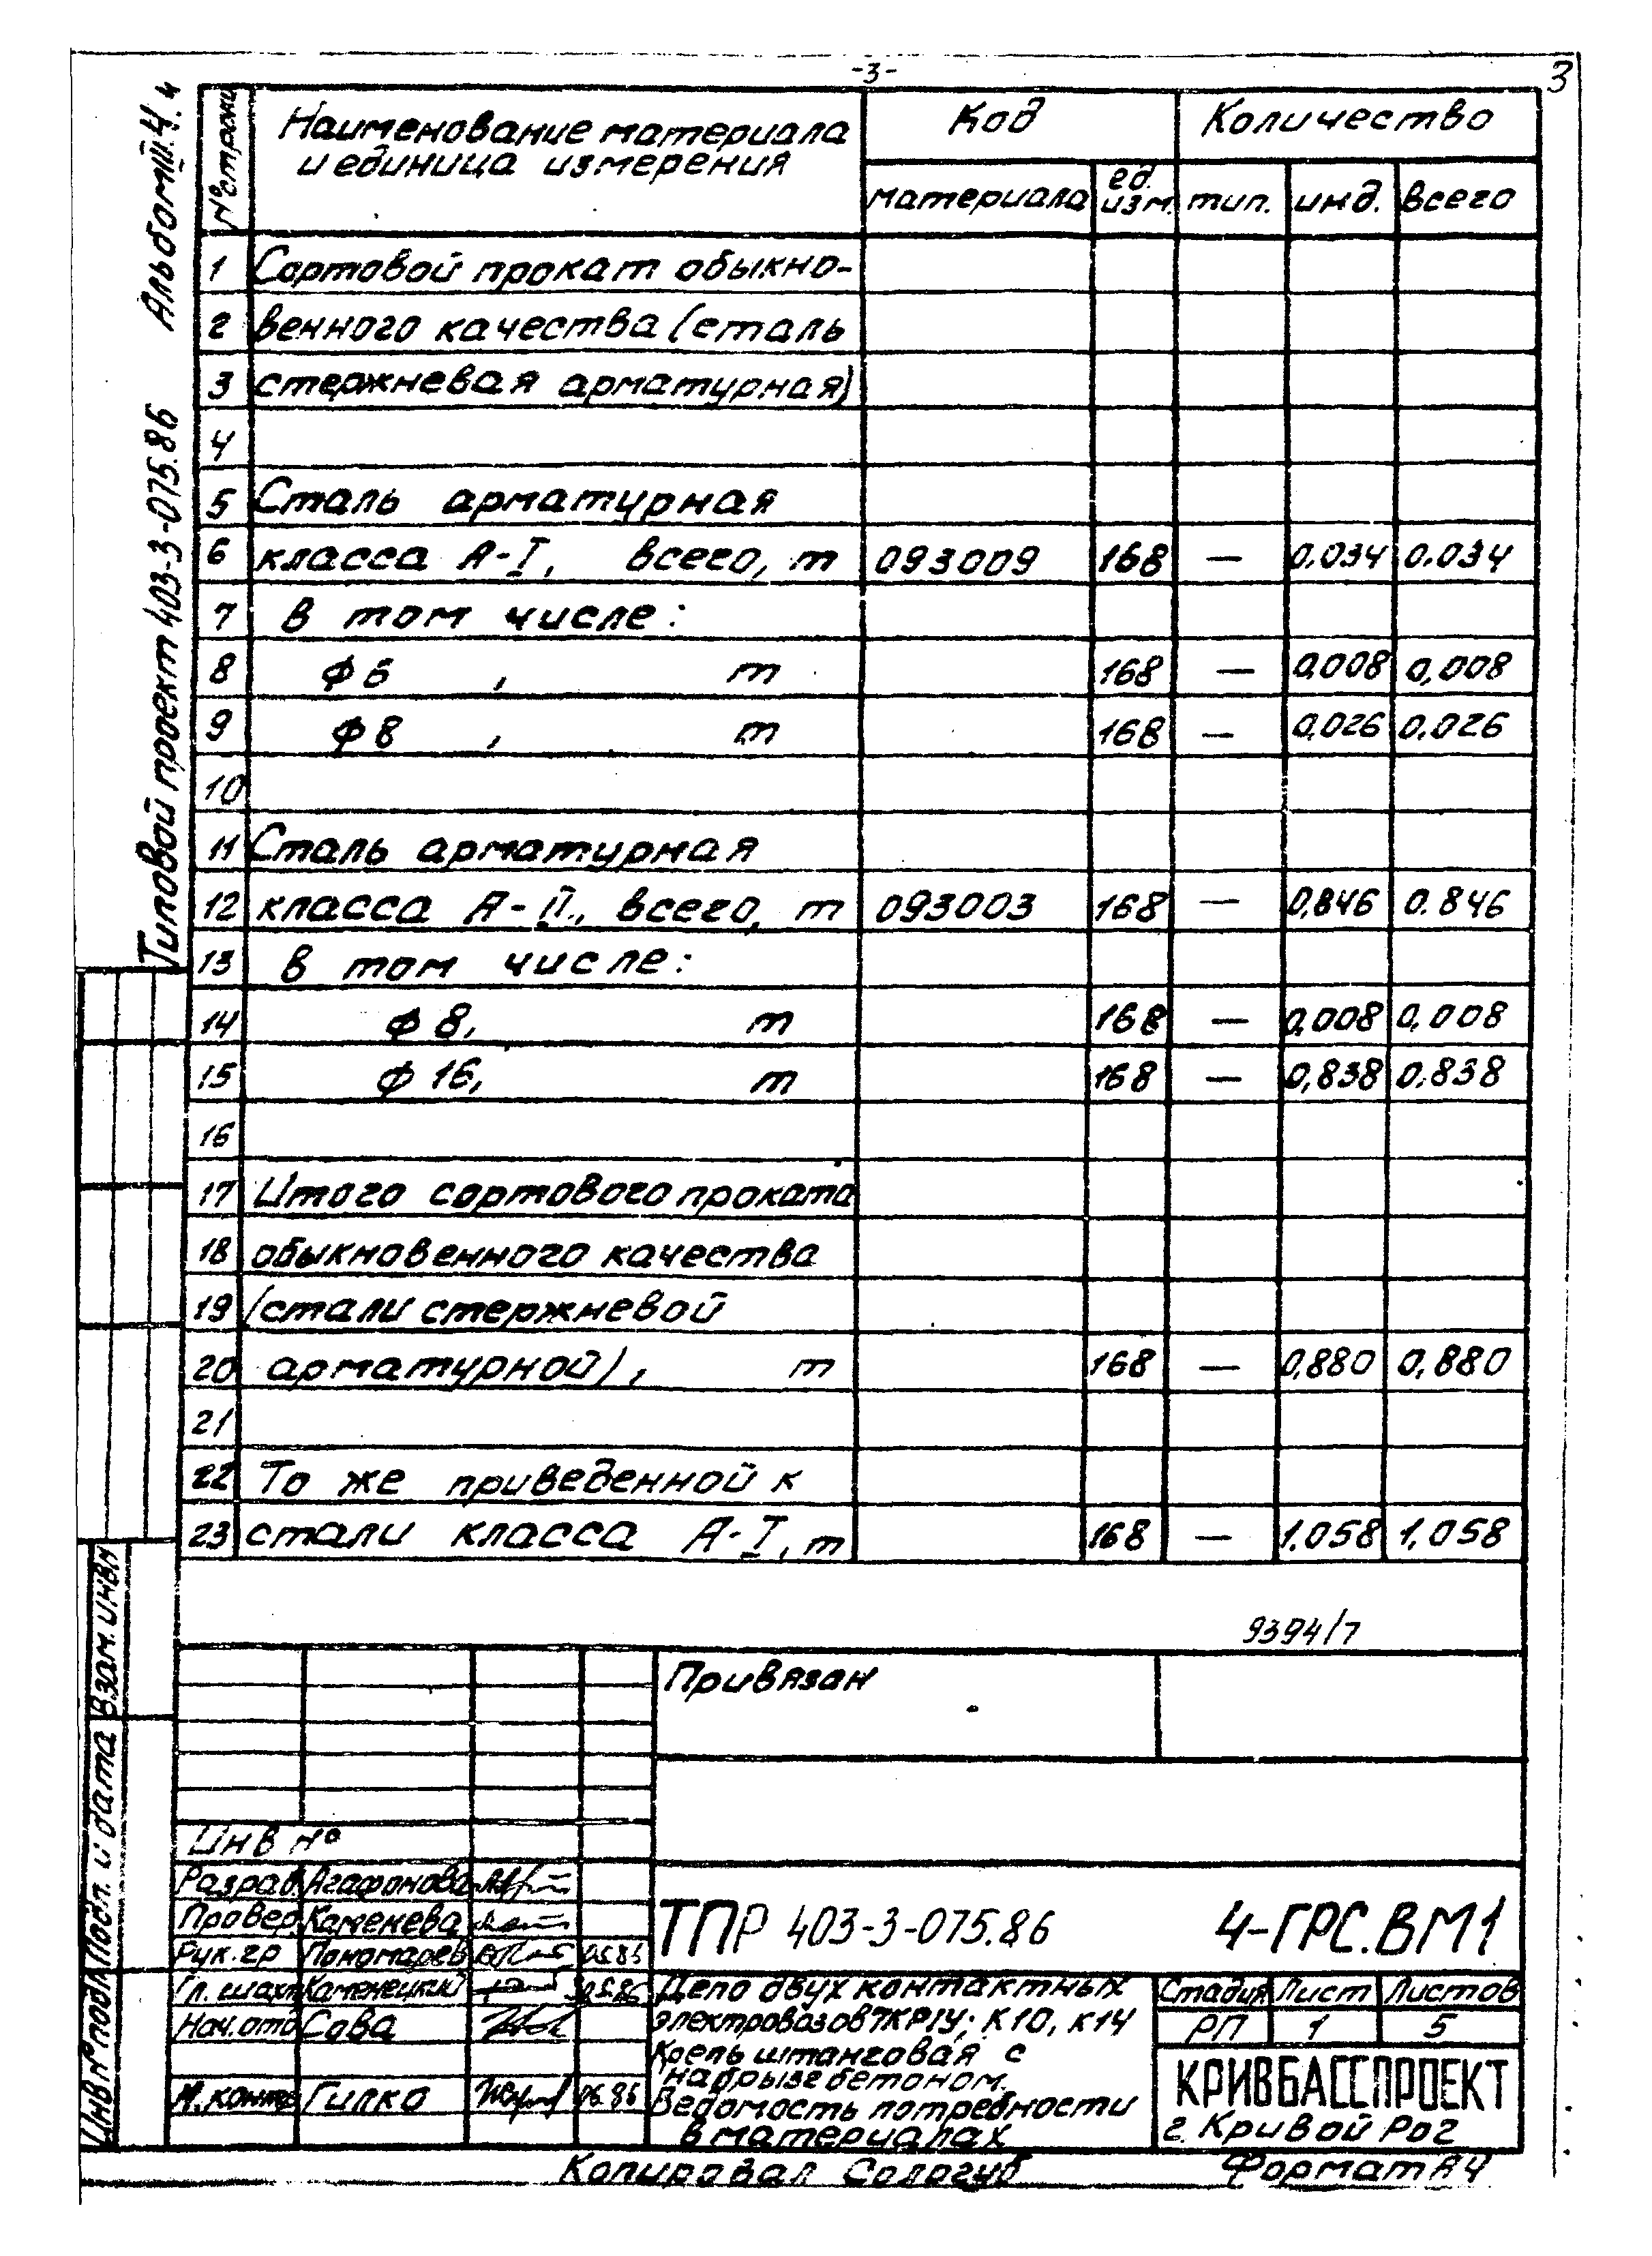 -3-
3
Типовой проект 403-3-075.86 Альбом
№ строки Наименование материала и единица измерения Код Количество
материала ед. изм. тип. инд. всего
1 Сортовой прокат обыкно-
2 венного качества (сталь
3 стержневая арматурная)
4
5 Сталь арматурная
6 класса А-I, всего, т 093009 168 — 0.034 0.034
7 в том числе:
8 ф 6 , т 168 — 0,008 0,008
9 ф 8 , т 168 — 0,026 0.026
10
11 Сталь арматурная
12 класса А-II, всего, т 093003 168 — 0,846 0.846
13 в том числе:
14 ф 8, т 168 — 0,008 0,008
15 ф 16, т 168 — 0,838 0,838
16
17 Итого сортового проката
18 обыкновенного качества
19 (стали стержневой
20 арматурной), т 168 — 0,880 0,880
21
22 То же приведенной к
23 стали класса А-I, т 168 — 1.058 1,058
9394/7
Привязан
Инв №
Разраб. Агафонова
Провер. Каменева
Рук. гр Пономарев 05.86
Гл. шахт Каменецкий
Нач. отд Сова
Н. контр Гилко 06.86
ТПР 403-3-075.86 4-ГРС.ВМ1
Депо двух контактных
электровозов 7КР1У; К10, К14
Крепь штанговая с
набрызгбетоном.
Ведомость потребности
в материалах
Стадия Лист Листов
РП 1 5
КРИВБАССПРОЕКТ
г. Кривой Рог
Инв № подл Подп. и дата Взам. инв№
Копировал Сологуб Формат А4